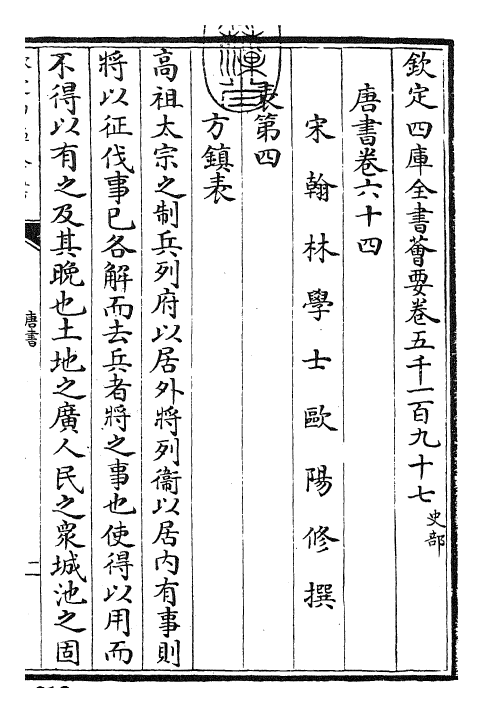 欽定四庫全書薈要卷五千一百九十七史部
唐書卷六十四
宋翰林學士歐陽修撰
表第四
方鎮表
高祖太宗之制兵列府以居外將列衞以居內有事則
將以征伐事已各解而去兵者將之事也使得以用而
不得以有之及其晚也土地之廣人民之衆城池之固
唐書
二